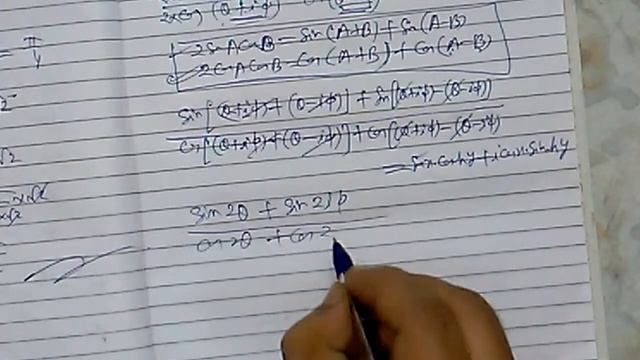 2 Sin A Cos B = Sin (A+B) + Sin (A-B)
2 Cos A Cos B = Cos (A+B) + Cos (A-B)
Sin[(θ+iϕ)+(θ-iϕ)] + Sin[(θ+iϕ)-(θ-iϕ)]
Cos[(θ+iϕ)+(θ-iϕ)] + Cos[(θ+iϕ)-(θ-iϕ)]
= Sinx Coshy + i Cosx Sinhy
Sin 2θ + Sin 2iϕ
Cos 2θ + Cos 2